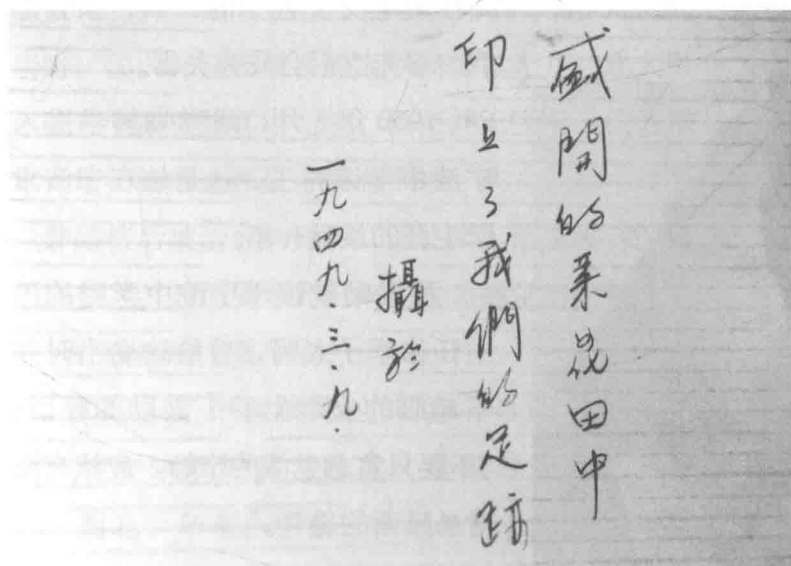 盛開的菜花田中
印上了我們的足跡
攝於
一九四九.三.九.